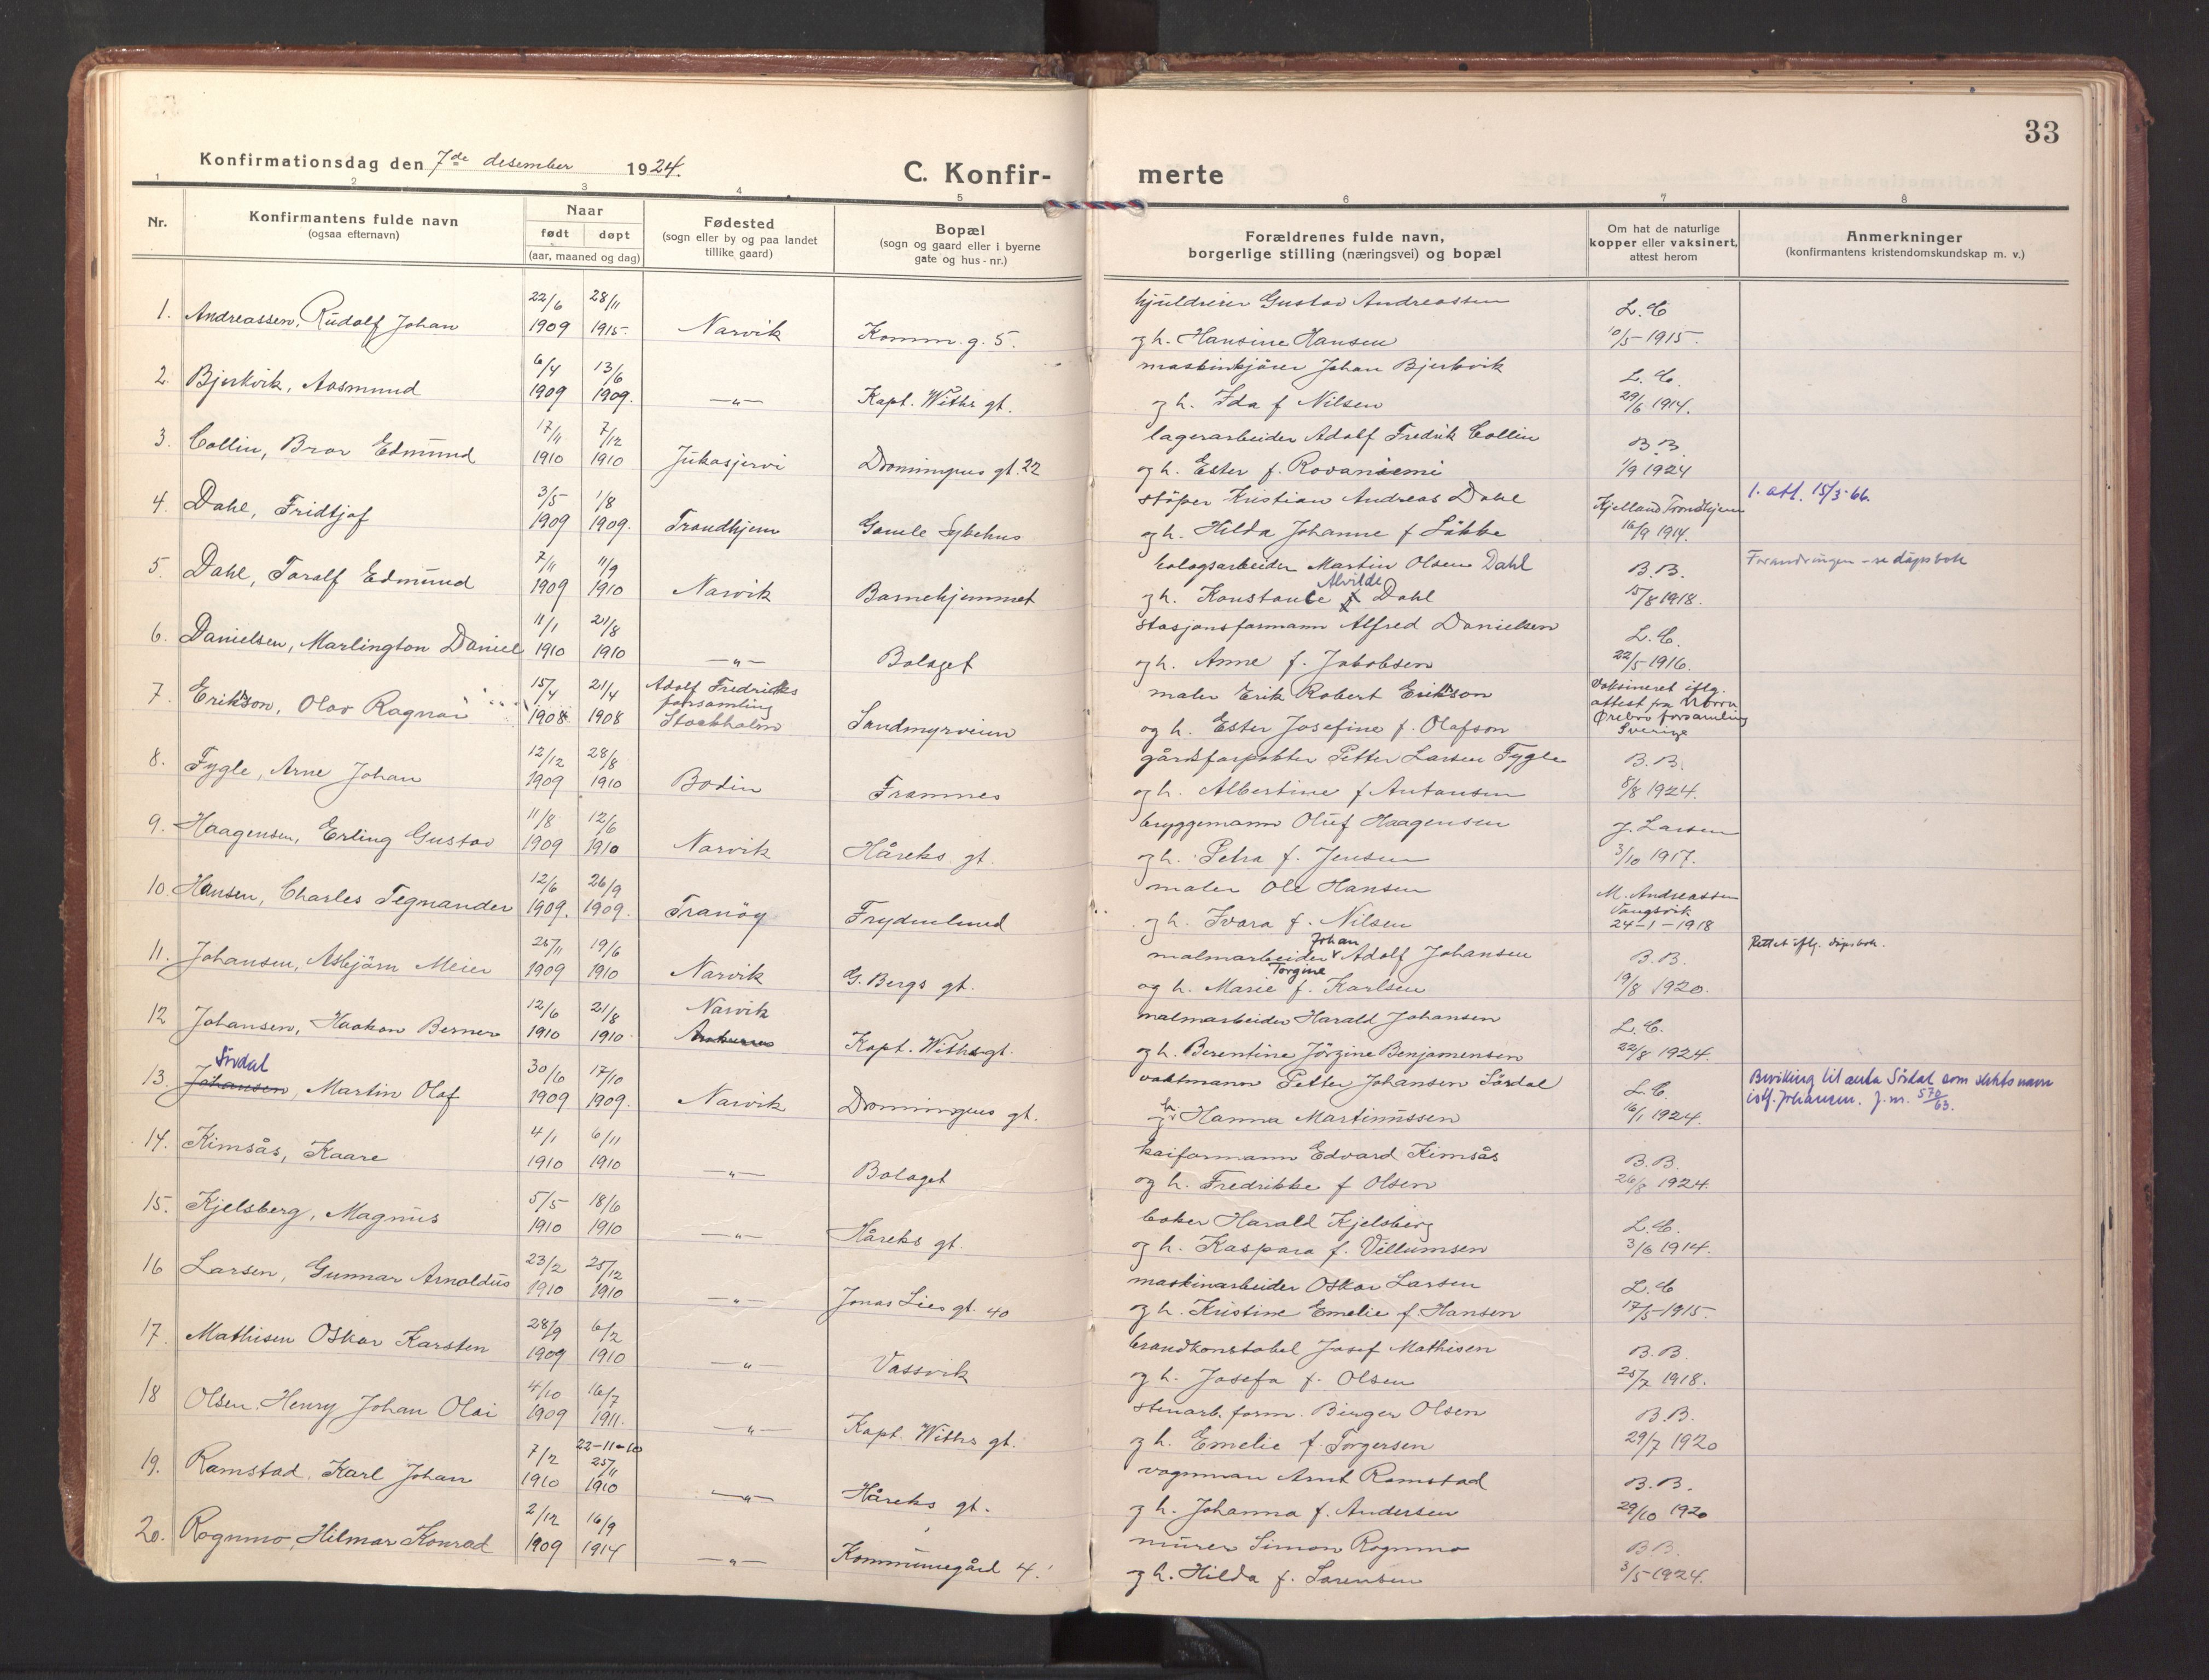 33
Konfirmationsdag den 7de desember 1924.
C. Konfir- merte
1 2 3 4 5 6 7 8
Nr.
Konfirmantens fulde navn
(ogsaa efternavn)
Naar
født døpt
(aar, maaned og dag)
Fødested
(sogn eller by og paa landet
tillike gaard)
Bopæl
(sogn og gaard eller i byerne
gate og hus-nr.)
Forældrenes fulde navn,
borgerlige stilling (næringsvei) og bopæl
Om hat de naturlige
kopper eller vaksinert,
attest herom
Anmerkninger
(konfirmantens kristendomskundskap m. v.)
22/6 28/11 hjuldreier Gustav Andreassen L.C
1. Andreassen, Rudolf Johan 1909 1915. Narvik Komm. g. 5. og h. Hansine Hansen 10/5-1915.
6/4 13/6 maskinkjører Johan Bjerkvik L.C.
2. Bjerkvik, Aasmund 1909 1909. —„— Kapt. Withs gt. og h. Ida f Nilsen 29/6 1914.
17/11 7/12 lagerarbeider Adolf Fredrik Collin B.B.
3. Collin, Bror Edmund 1910 1910 Jukasjervi Dronningens gt. 22 og h. Ester f. Rovaniemi 1/9 1924
3/5 1/8 støper Kristian Andreas Dahl Kjelland Trondhjem 1. att. 15/3-66.
4. Dahl, Fridtjof 1909 1909. Trondhjem Gamle Sykehus og h. Hilda Johanne f Løkke 16/9 1914.
7/11 11/9 bologsarbeider Martin Olsen Dahl B.B. Forandringen - se dåpsbok
5. Dahl, Toralf Edmund 1909 1910 Narvik Barnehjemmet og h. Konstance Alvilde f Dahl 15/8 1918.
11/1 21/8 stasjonsformann Alfred Danielsen L.C.
6. Danielsen, Marlington Daniel 1910 1910 —„— Bolaget og h. Anne f. Jakobsen 22/5-1916.
15/4 21/4 Adolf Fredriks forsamling maler Erik Robert Erikson Vaksineret iflg. attest fra Norra
7. Erikson, Olov Ragnar 1908 1908 Stockholm Sandmyrveien og h. Ester Josefine f. Olafson Ørebro forsamling Sverige
12/12 28/8 gårdsforpakter Petter Larsen Fygle B.B.
8. Fygle, Arne Johan 1909 1910 Bodin Framnes og h. Albertine f Antonsen 8/8 1924.
11/8 12/6 bryggemann Oluf Haagensen J. Larsen
9. Haagensen, Erling Gustav 1909 1910 Narvik Håreks gt. og h. Petra f. Jensen 3/10 1917.
12/6 26/9 maler Ole Hansen M. Andreassen Vangsvik
10. Hansen, Charles Tegnander 1909. 1909. Tranøy Frydenlund og h. Ivara f. Nilsen 24-1-1918
25/11 19/6 malmarbeider Johan Adolf Johansen B.B. Rettet iflg. dåpsbok.
11. Johansen, Asbjørn Meier 1909 1910 Narvik G. Bergs gt. og h. Marie Torgine f. Karlsen 19/8 1920.
12/6 21/8 Narvik malmarbeider Harald Johansen L.C.
12 Johansen, Haakon Berner 1910 1910 Kapt. Withsgt. og h. Berentine Jørgine Benjamensen 22/8 1924.
Sørdal 30/6 17/10 vaktmann Petter Johansen Sørdal L.C. Bevilling til anta Sørdal som slektsnavn
13. Johansen, Martin Olaf 1909 1909. Narvik Dronningens gt. Hanna Martinussen 16/1 1924. istf. Johansen. J.nr. 570/63.
4/1 6/11 kaiformann Edvard Kimsås B.B.
14. Kimsås, Kaare 1910 1910 —„— Bolaget og h. Fredrikke f Olsen 26/8 1924.
5/5 18/6 baker Harald Kjelsberg L.C.
15. Kjelsberg, Magnus 1910 1910 —„— Håreks gt. og h. Kaspara f. Villumsen 3/6 1914.
23/2 25/12 maskinarbeider Oskar Larsen L.C
16 Larsen, Gunnar Arnoldus 1910 1910 —„— Jonas Lies gt. 40 og h. Kristine Emelie f. Hansen 17/5-1915.
28/9 6/2 brandkonstabel Josef Mathisen B.B.
17. Mathisen Oskar Karsten 1909 1910 —„— Vassvik og h. Josefa f. Olsen 25/7 1918.
4/10 16/7 stenarb. form. Birger Olsen B.B.
18 Olsen, Henry Johan Olai 1909 1911. —„— Kapt. Withs gt. og h. Emelie f. Torgersen 29/7 1920
7/2 22-11-10 25/11 vognman Arnt Ramstad B.B.
19. Ramstad, Karl Johan 1910 1910 —„— Håreks gt. og h. Johanna f. Andersen 29/10 1920
2/12 16/9 murer Simon Rognmo B.B.
20. Rognmo, Hilmar Konrad 1909 1914 —„— Kommunegård 4. og h. Hilda f. Sørensen 3/5-1924.